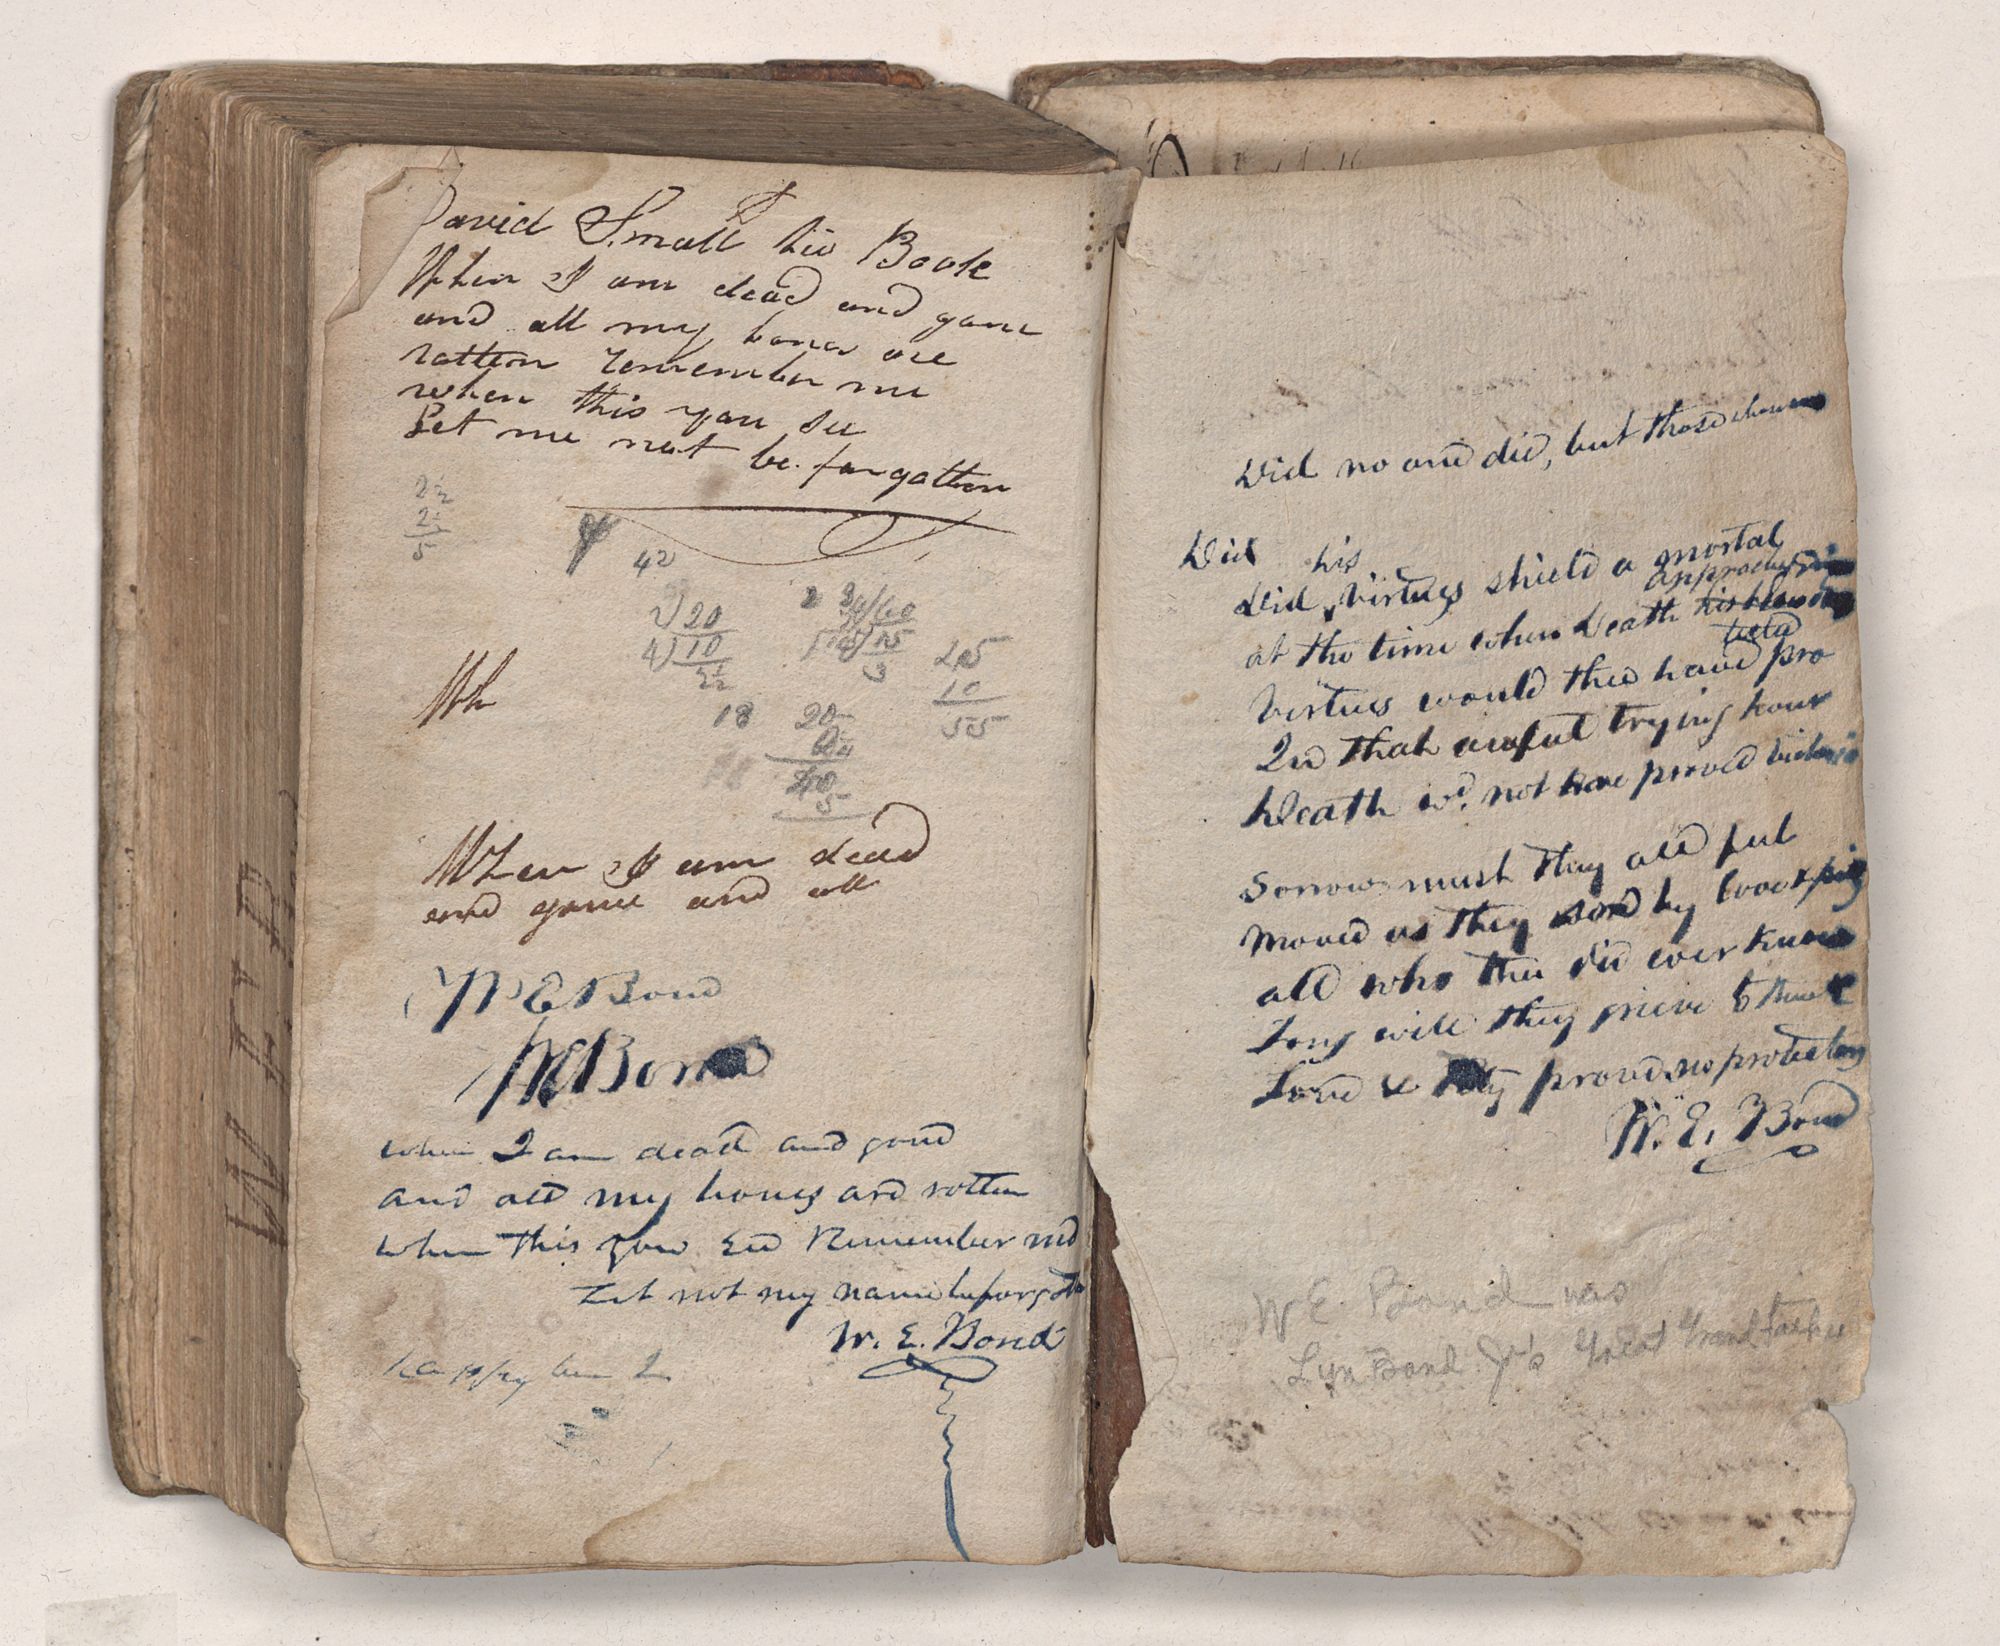 David Small his Book
When I am dead and gone
and all my bones are
rotten remember me
when this you see
Let me not be forgotten
2½
2½
5
42
2)20
4)10
2½
18
20
40
5
15
3
45
10
55
Wh
When I am dead
and gone and all
W E Bond
W E Bond
when I am dead and gone
and all my bones are rotten
when this you see Remember me
Let not my name be forgotten
W. E. Bond
happy am I
Did no one die, but those whose
Did his
Did virtues shield a mortal
approaching
at the time when death his
Virtues would thee have pro
tected
In that awful trying hour
Death wd. not have proved victorio
Sorrow must they all feel
Moved as they by
all who thee did ever know
Long will they grieve to think
Love & proved no protection
W. E. Bond
W E. Bond was
Lyn Bond Jr's Great Grandfather